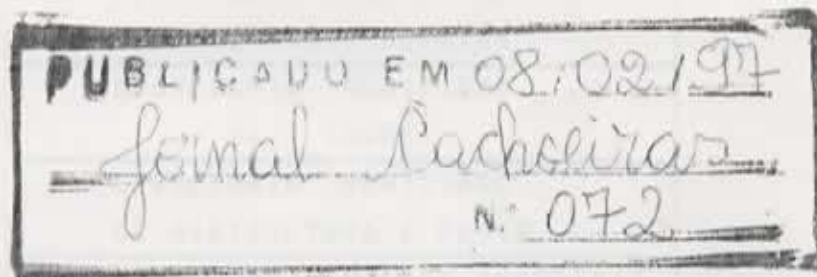 PUBLICADO EM 08/02/97
Jornal Cachoeiras
N.º 072